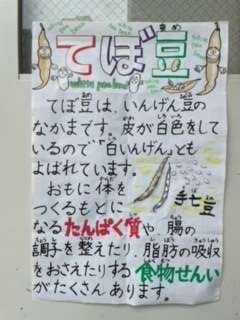 てぼ豆
てぼ豆は、いんげん豆の
なかまです。皮が白色をして
いるので「白いんげん」とも
よばれています。
おもに体を
つくるもとに
なるたんぱく質や、腸の
調子を整えたり、脂肪の吸収
をおさえたりする食物せんい
がたくさんあります。
手亡豆